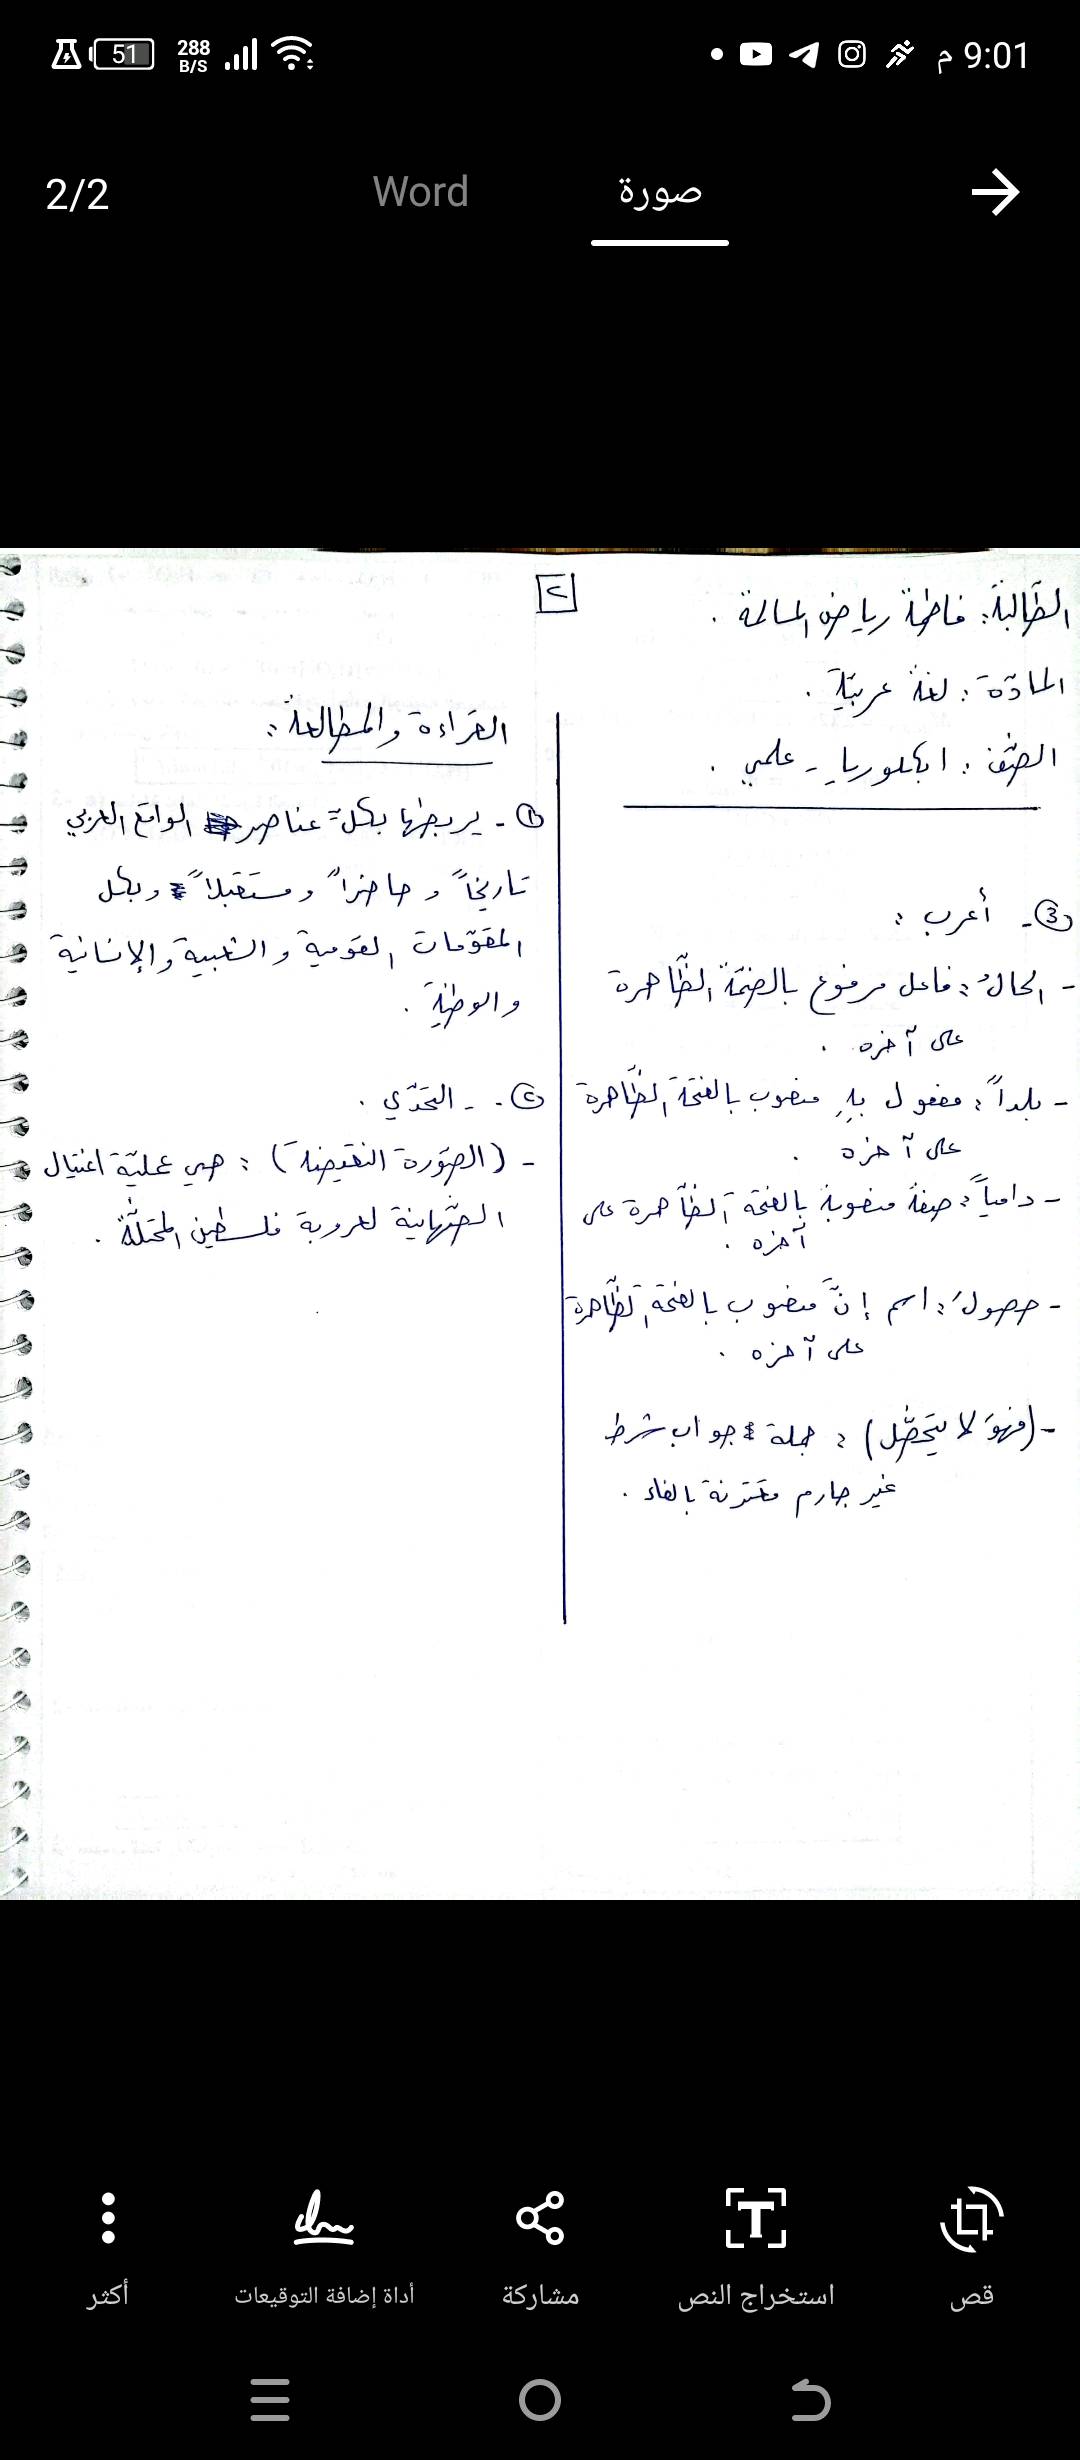 51 288 B/S 9:01 م
2/2 Word صورة
٢
الطّالبة: فاطمة رياض المسالمة .
المادّة: لغة عربيّة .
الصّف: بكالوريا - علمي .
③- أعرب :
- الحالُ: فاعل مرفوع بالضمّة الظّاهرة
على آخره .
- بلداً: مفعول به منصوب بالفتحة الظّاهرة
على آخره .
- دامياً: صفة منصوبة بالفتحة الظّاهرة على
آخره .
- حصولَ: اسم إنّ منصوب بالفتحة الظّاهرة
على آخره .
- (فهوَ لا يتحصّل) : جملة جواب شرط
غير جازم مقترنة بالفاء .
القراءة والمطالعة :
①- يربطها بكل عناصر الواقع العربي
تاريخاً و حاضراً و مستقبلاً وبكل
المقوّمات القومية والشعبية والإنسانية
والوطنية .
②- التحدّي .
- (الصّورة النقيضة) : هي عمليّة اغتيال
الصّهاينة لعروبة فلسطين المحتلّة .
قص
استخراج النص
مشاركة
أداة إضافة التوقيعات
أكثر